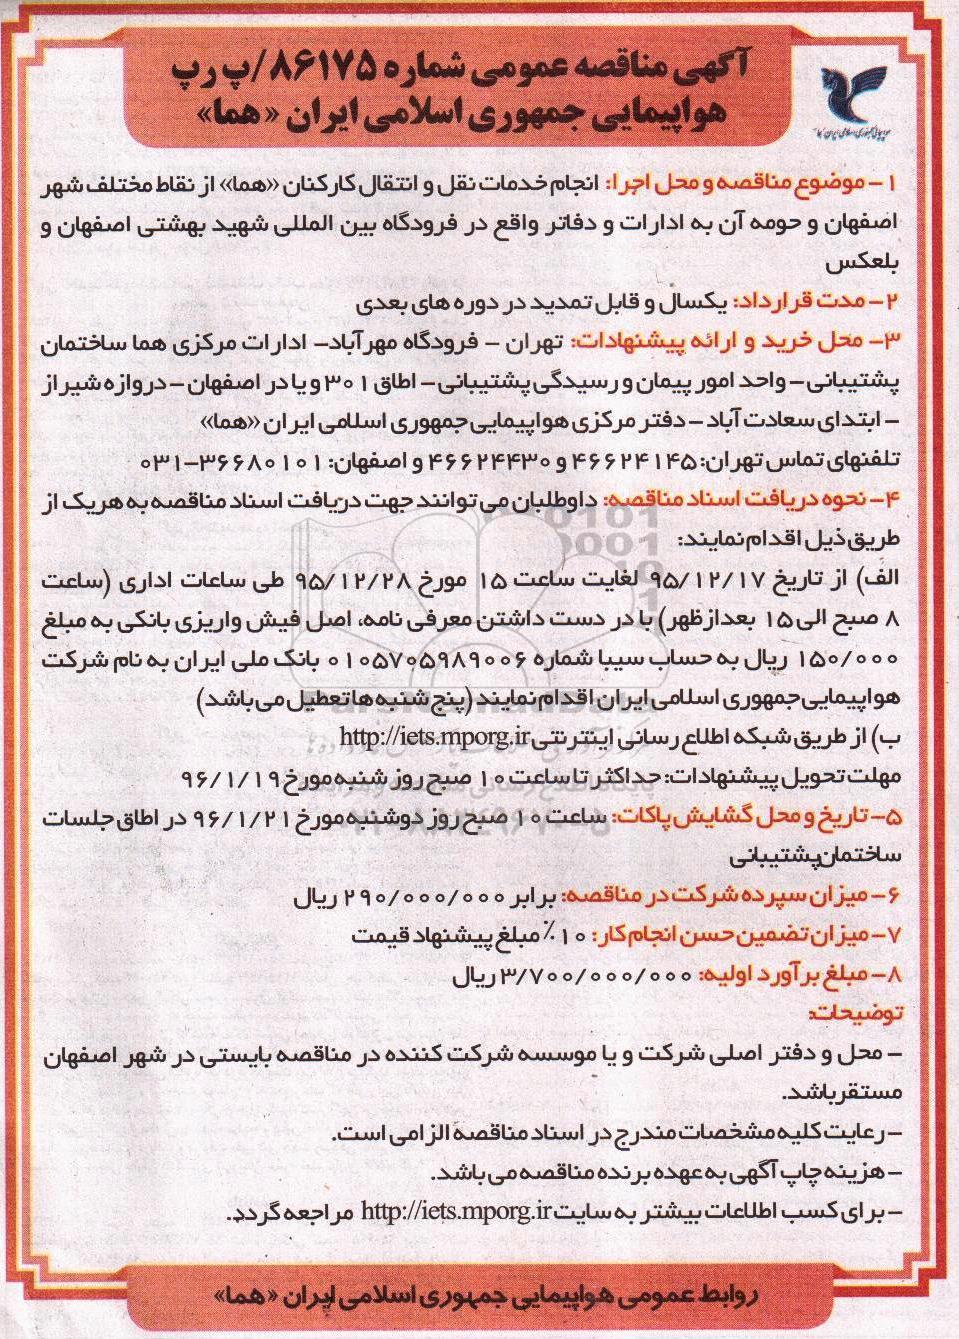 آگهی مناقصه عمومی شماره ۸۶۱۷۵/پ رپ
هواپیمایی جمهوری اسلامی ایران «هما»
۱- موضوع مناقصه و محل اجرا: انجام خدمات نقل و انتقال کارکنان «هما» از نقاط مختلف شهر
اصفهان و حومه آن به ادارات و دفاتر واقع در فرودگاه بین المللی شهید بهشتی اصفهان و
بلعکس
۲- مدت قرارداد: یکسال و قابل تمدید در دوره های بعدی
۳- محل خرید و ارائه پیشنهادات: تهران - فرودگاه مهرآباد- ادارات مرکزی هما ساختمان
پشتیبانی - واحد امور پیمان و رسیدگی پشتیبانی - اطاق ۳۰۱ و یا در اصفهان - دروازه شیراز
- ابتدای سعادت آباد - دفتر مرکزی هواپیمایی جمهوری اسلامی ایران «هما»
تلفنهای تماس تهران: ۴۶۶۲۴۱۴۵ و ۴۶۶۲۴۴۳۰ و اصفهان: ۳۶۶۸۰۱۰۱-۰۳۱
۴- نحوه دریافت اسناد مناقصه: داوطلبان می توانند جهت دریافت اسناد مناقصه به هریک از
طریق ذیل اقدام نمایند:
الف) از تاریخ ۹۵/۱۲/۱۷ لغایت ساعت ۱۵ مورخ ۹۵/۱۲/۲۸ طی ساعات اداری (ساعت
۸ صبح الی ۱۵ بعدازظهر) با در دست داشتن معرفی نامه، اصل فیش واریزی بانکی به مبلغ
۱۵۰/۰۰۰ ریال به حساب سیبا شماره ۰۱۰۵۷۰۵۹۸۹۰۰۶ بانک ملی ایران به نام شرکت
هواپیمایی جمهوری اسلامی ایران اقدام نمایند (پنج شنبه ها تعطیل می باشد)
ب) از طریق شبکه اطلاع رسانی اینترنتی http://iets.mporg.ir
مهلت تحویل پیشنهادات: حداکثر تا ساعت ۱۰ صبح روز شنبه مورخ ۹۶/۱/۱۹
۵- تاریخ و محل گشایش پاکات: ساعت ۱۰ صبح روز دوشنبه مورخ ۹۶/۱/۲۱ در اطاق جلسات
ساختمان پشتیبانی
۶- میزان سپرده شرکت در مناقصه: برابر ۲۹۰/۰۰۰/۰۰۰ ریال
۷- میزان تضمین حسن انجام کار: ۱۰٪ مبلغ پیشنهاد قیمت
۸- مبلغ برآورد اولیه: ۳/۷۰۰/۰۰۰/۰۰۰ ریال
توضیحات:
- محل و دفتر اصلی شرکت و یا موسسه شرکت کننده در مناقصه بایستی در شهر اصفهان
مستقر باشد.
- رعایت کلیه مشخصات مندرج در اسناد مناقصه الزامی است.
- هزینه چاپ آگهی به عهده برنده مناقصه می باشد.
- برای کسب اطلاعات بیشتر به سایت http://iets.mporg.ir مراجعه گردد.
روابط عمومی هواپیمایی جمهوری اسلامی ایران «هما»